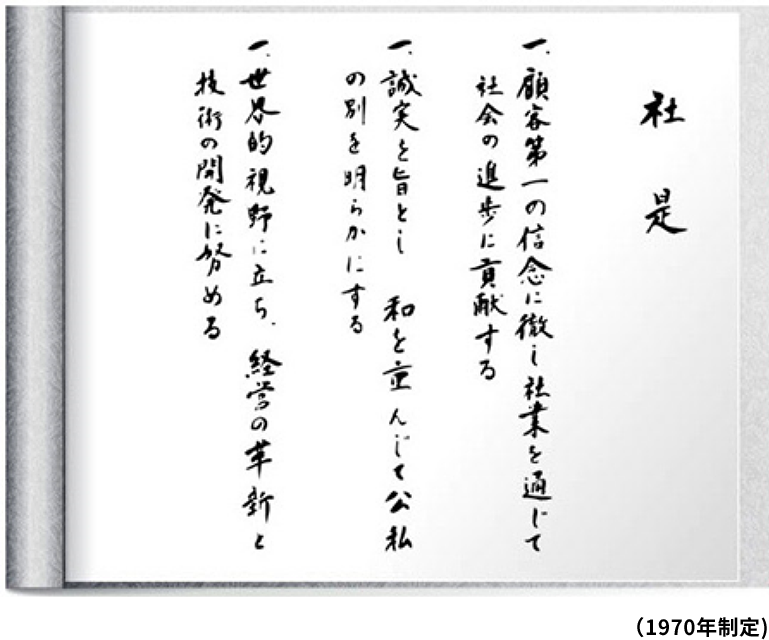 社是
一、顧客第一の信念に徹し社業を通じて
社会の進歩に貢献する
一、誠実を旨とし 和を重んじて公私
の別を明らかにする
一、世界的視野に立ち、経営の革新と
技術の開発に努める
（1970年制定）